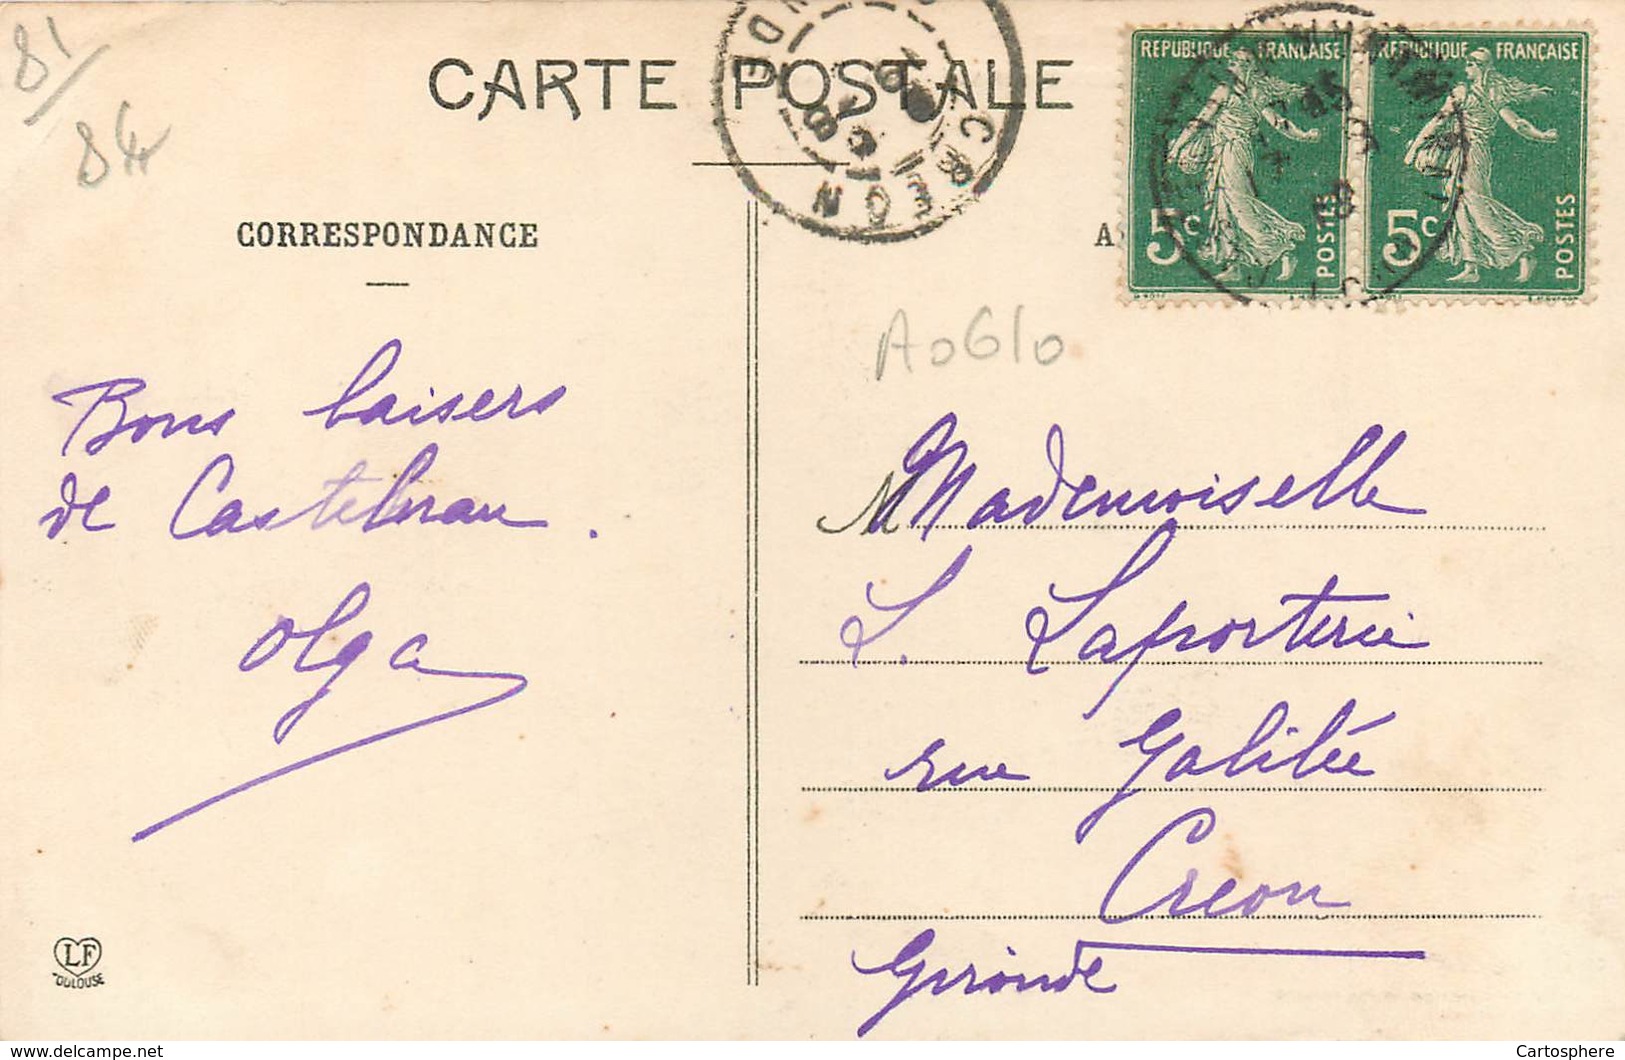 81
84
CARTE POSTALE
CREON
REPUBLIQUE FRANÇAISE
5c
POSTES
REPUBLIQUE FRANÇAISE
5c
POSTES
CORRESPONDANCE
A0610
Bons baisers
de Castelnau.
Olga
Mademoiselle
L. Laporterie
rue Galilée
Créon
Gironde
LF
TOULOUSE
delcampe.net
Cartosphere